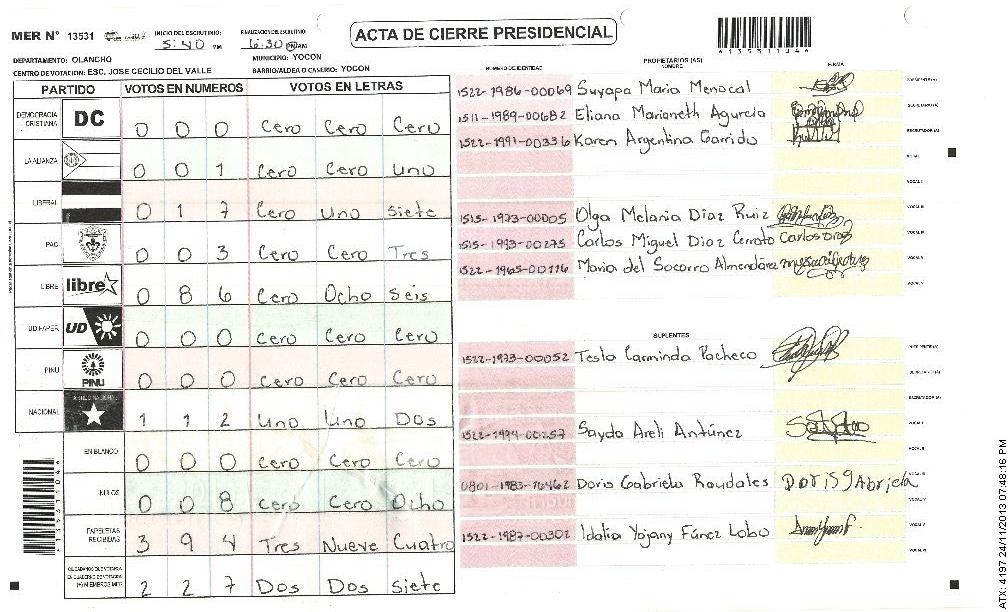 MER Nº 13531
INICIO DEL ESCRUTINIO:
5:40 PM
FINALIZACION DEL ESCRUTINIO
6:30 PM AM
ACTA DE CIERRE PRESIDENCIAL
DEPARTAMENTO: OLANCHO
MUNICIPIO: YOCON
CENTRO DE VOTACION: ESC. JOSE CECILIO DEL VALLE
BARRIO/ALDEA O CASERIO: YOCON
PARTIDO VOTOS EN NUMEROS VOTOS EN LETRAS
DEMOCRACIA CRISTIANA DC 0 0 0 Cero Cero Cero
LA ALIANZA 0 0 1 Cero Cero Uno
LIBERAL 0 1 7 Cero Uno Siete
PAC 0 0 3 Cero Cero Tres
LIBRE libre 0 8 6 Cero Ocho Seis
UD FAPER UD 0 0 0 Cero Cero Cero
PINU PINU 0 0 0 Cero Cero Cero
NACIONAL 1 1 2 Uno Uno Dos
EN BLANCO 0 0 0 Cero Cero Cero
NULOS 0 0 8 Cero Cero Ocho
PAPELETAS RECIBIDAS 3 9 4 Tres Nueve Cuatro
2 2 7 Dos Dos Siete
NUMERO DE IDENTIDAD PROPIETARIOS (AS) NOMBRE FIRMA
1522-1986-00069 Suyapa Maria Menocal
1511-1989-00682 Eliana Marianeth Agurcia
1522-1991-00336 Karen Argentina Garrido
1515-1973-00005 Olga Melania Diaz Ruiz
1515-1993-00275 Carlos Miguel Diaz Cerrato Carlos Diaz
1522-1965-00116 Maria del Socorro Almendárez
SUPLENTES
1522-1973-00052 Tesla Carminda Pacheco
1522-1994-00257 Sayda Areli Antúnez
0801-1983-10462 Doris Gabriela Raudales Doris Gabriela
1522-1987-00302 Idalia Yojany Fúnez Lobo
ATX: 4197 24/11/2013 07:48:16 PM